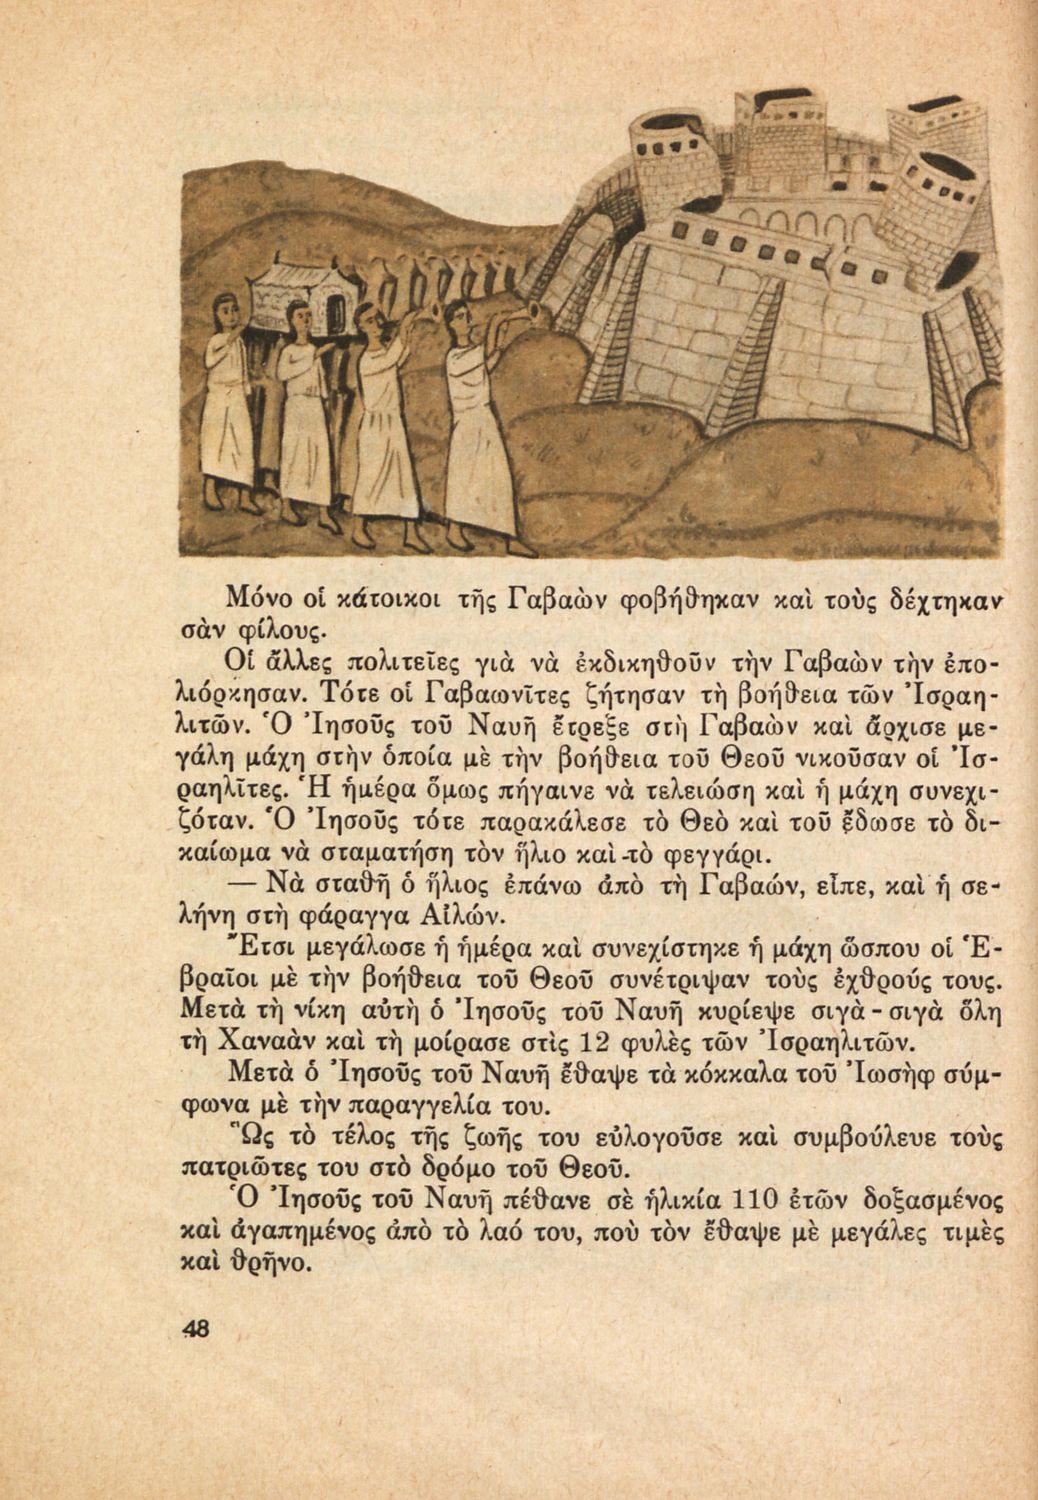 Μόνο οἱ κάτοικοι τῆς Γαβαὼν φοβήθηκαν καὶ τοὺς δέχτηκαν
σὰν φίλους.
Οἱ ἄλλες πολιτεῖες γιὰ νὰ ἐκδικηθοῦν τὴν Γαβαὼν τὴν ἐπο-
λιόρκησαν. Τότε οἱ Γαβαωνῖτες ζήτησαν τὴ βοήθεια τῶν Ἰσραη-
λιτῶν. Ὁ Ἰησοῦς τοῦ Ναυῆ ἔτρεξε στὴ Γαβαὼν καὶ ἄρχισε με-
γάλη μάχη στὴν ὁποία μὲ τὴν βοήθεια τοῦ Θεοῦ νικοῦσαν οἱ Ἰσ-
ραηλῖτες. Ἡ ἡμέρα ὅμως πήγαινε νὰ τελειώση καὶ ἡ μάχη συνεχι-
ζόταν. Ὁ Ἰησοῦς τότε παρακάλεσε τὸ Θεὸ καὶ τοῦ ἔδωσε τὸ δι-
καίωμα νὰ σταματήση τὸν ἥλιο καὶ τὸ φεγγάρι.
— Νὰ σταθῆ ὁ ἥλιος ἐπάνω ἀπὸ τὴ Γαβαών, εἶπε, καὶ ἡ σε-
λήνη στὴ φάραγγα Αἰλών.
Ἔτσι μεγάλωσε ἡ ἡμέρα καὶ συνεχίστηκε ἡ μάχη ὥσπου οἱ Ἑ-
βραῖοι μὲ τὴν βοήθεια τοῦ Θεοῦ συνέτριψαν τοὺς ἐχθρούς τους.
Μετὰ τὴ νίκη αὐτὴ ὁ Ἰησοῦς τοῦ Ναυῆ κυρίεψε σιγὰ - σιγὰ ὅλη
τὴ Χαναὰν καὶ τὴ μοίρασε στὶς 12 φυλὲς τῶν Ἰσραηλιτῶν.
Μετὰ ὁ Ἰησοῦς τοῦ Ναυῆ ἔθαψε τὰ κόκκαλα τοῦ Ἰωσὴφ σύμ-
φωνα μὲ τὴν παραγγελία του.
Ὣς τὸ τέλος τῆς ζωῆς του εὐλογοῦσε καὶ συμβούλευε τοὺς
πατριῶτες του στὸ δρόμο τοῦ Θεοῦ.
Ὁ Ἰησοῦς τοῦ Ναυῆ πέθανε σὲ ἡλικία 110 ἐτῶν δοξασμένος
καὶ ἀγαπημένος ἀπὸ τὸ λαό του, ποὺ τὸν ἔθαψε μὲ μεγάλες τιμὲς
καὶ θρῆνο.
48